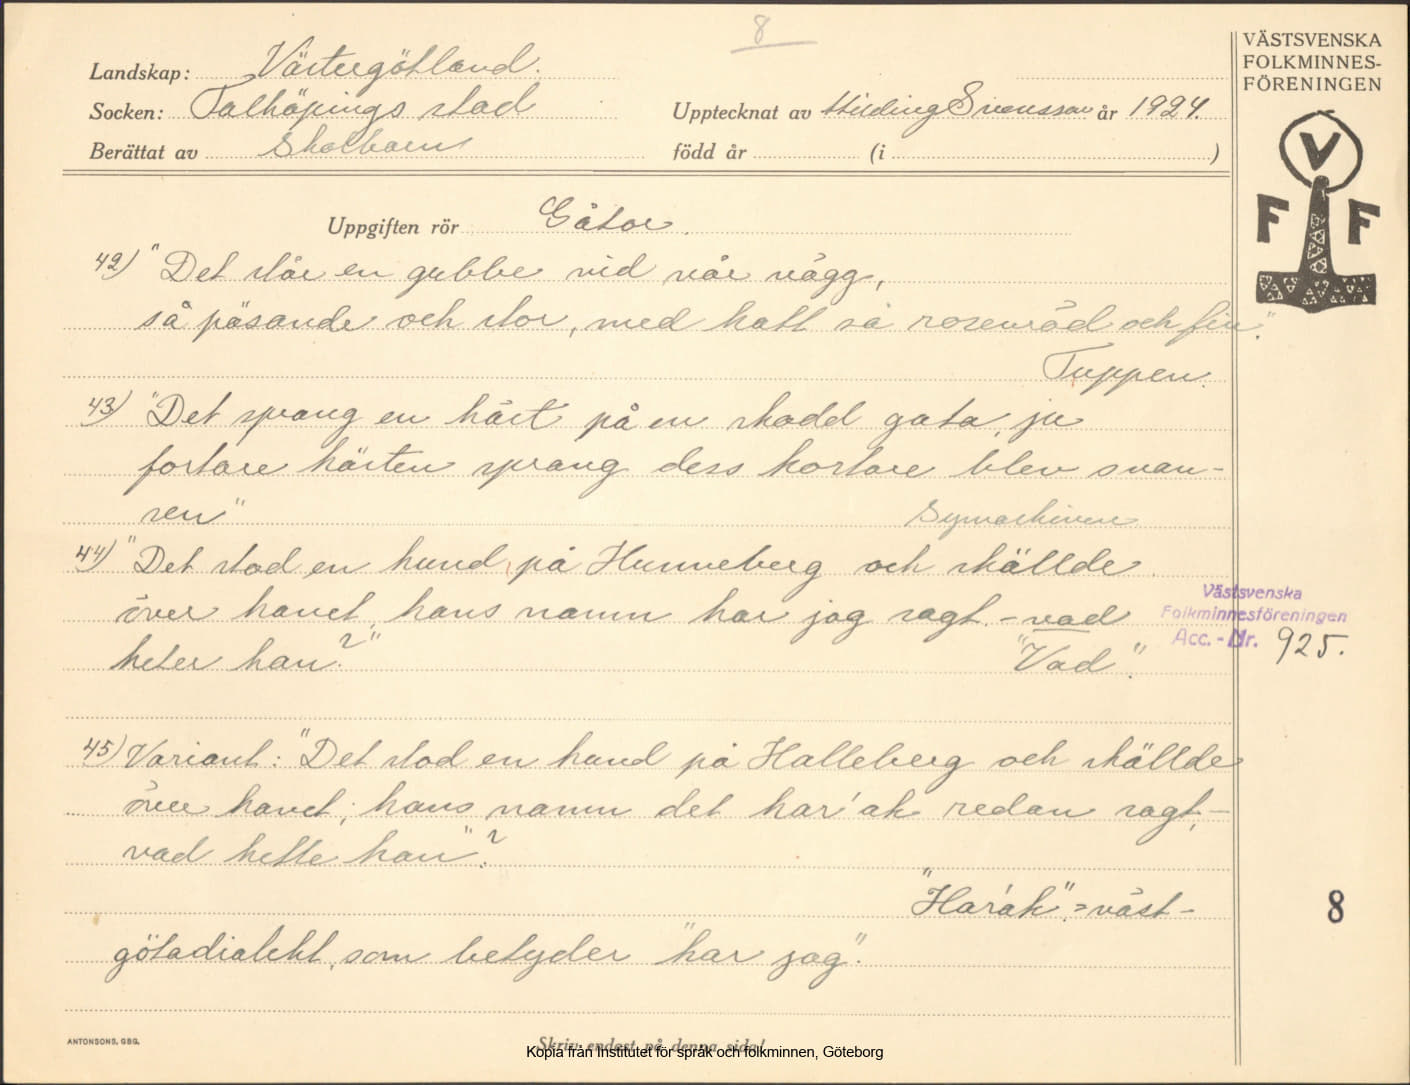 8
VÄSTSVENSKA
FOLKMINNES-
FÖRENINGEN
V
F F
Landskap: Västergötland.
Socken: Falköpings stad
Upptecknat av Hilding Svensson år 1924.
Berättat av Skolbarn
född år (i )
Uppgiften rör Gåtor.
42) "Det står en gubbe vid vår vägg,
så päsande och stor, med hatt så rosenröd och fin."
Tuppen.
43) "Det sprang en häst på en skodd gata, ju
fortare hästen sprang dess kortare blev svan-
sen"
Symaskinen
44) "Det stod en hund, på Hunneberg och skällde
över havet, hans namn har jag sagt. - vad
heter han?"
"Vad".
Västsvenska
Folkminnesföreningen
Acc. - Nr. 925.
45) Variant: "Det stod en hund på Halleberg och skällde
över havet; hans namn det har'ak redan sagt, -
vad hette han"?
"Har'ak" = väst-
götadialekt, som betyder "har jag".
8
ANTONSONS, GBG.
Skriv endast på denna sida!
Kopia från Institutet för språk och folkminnen, Göteborg